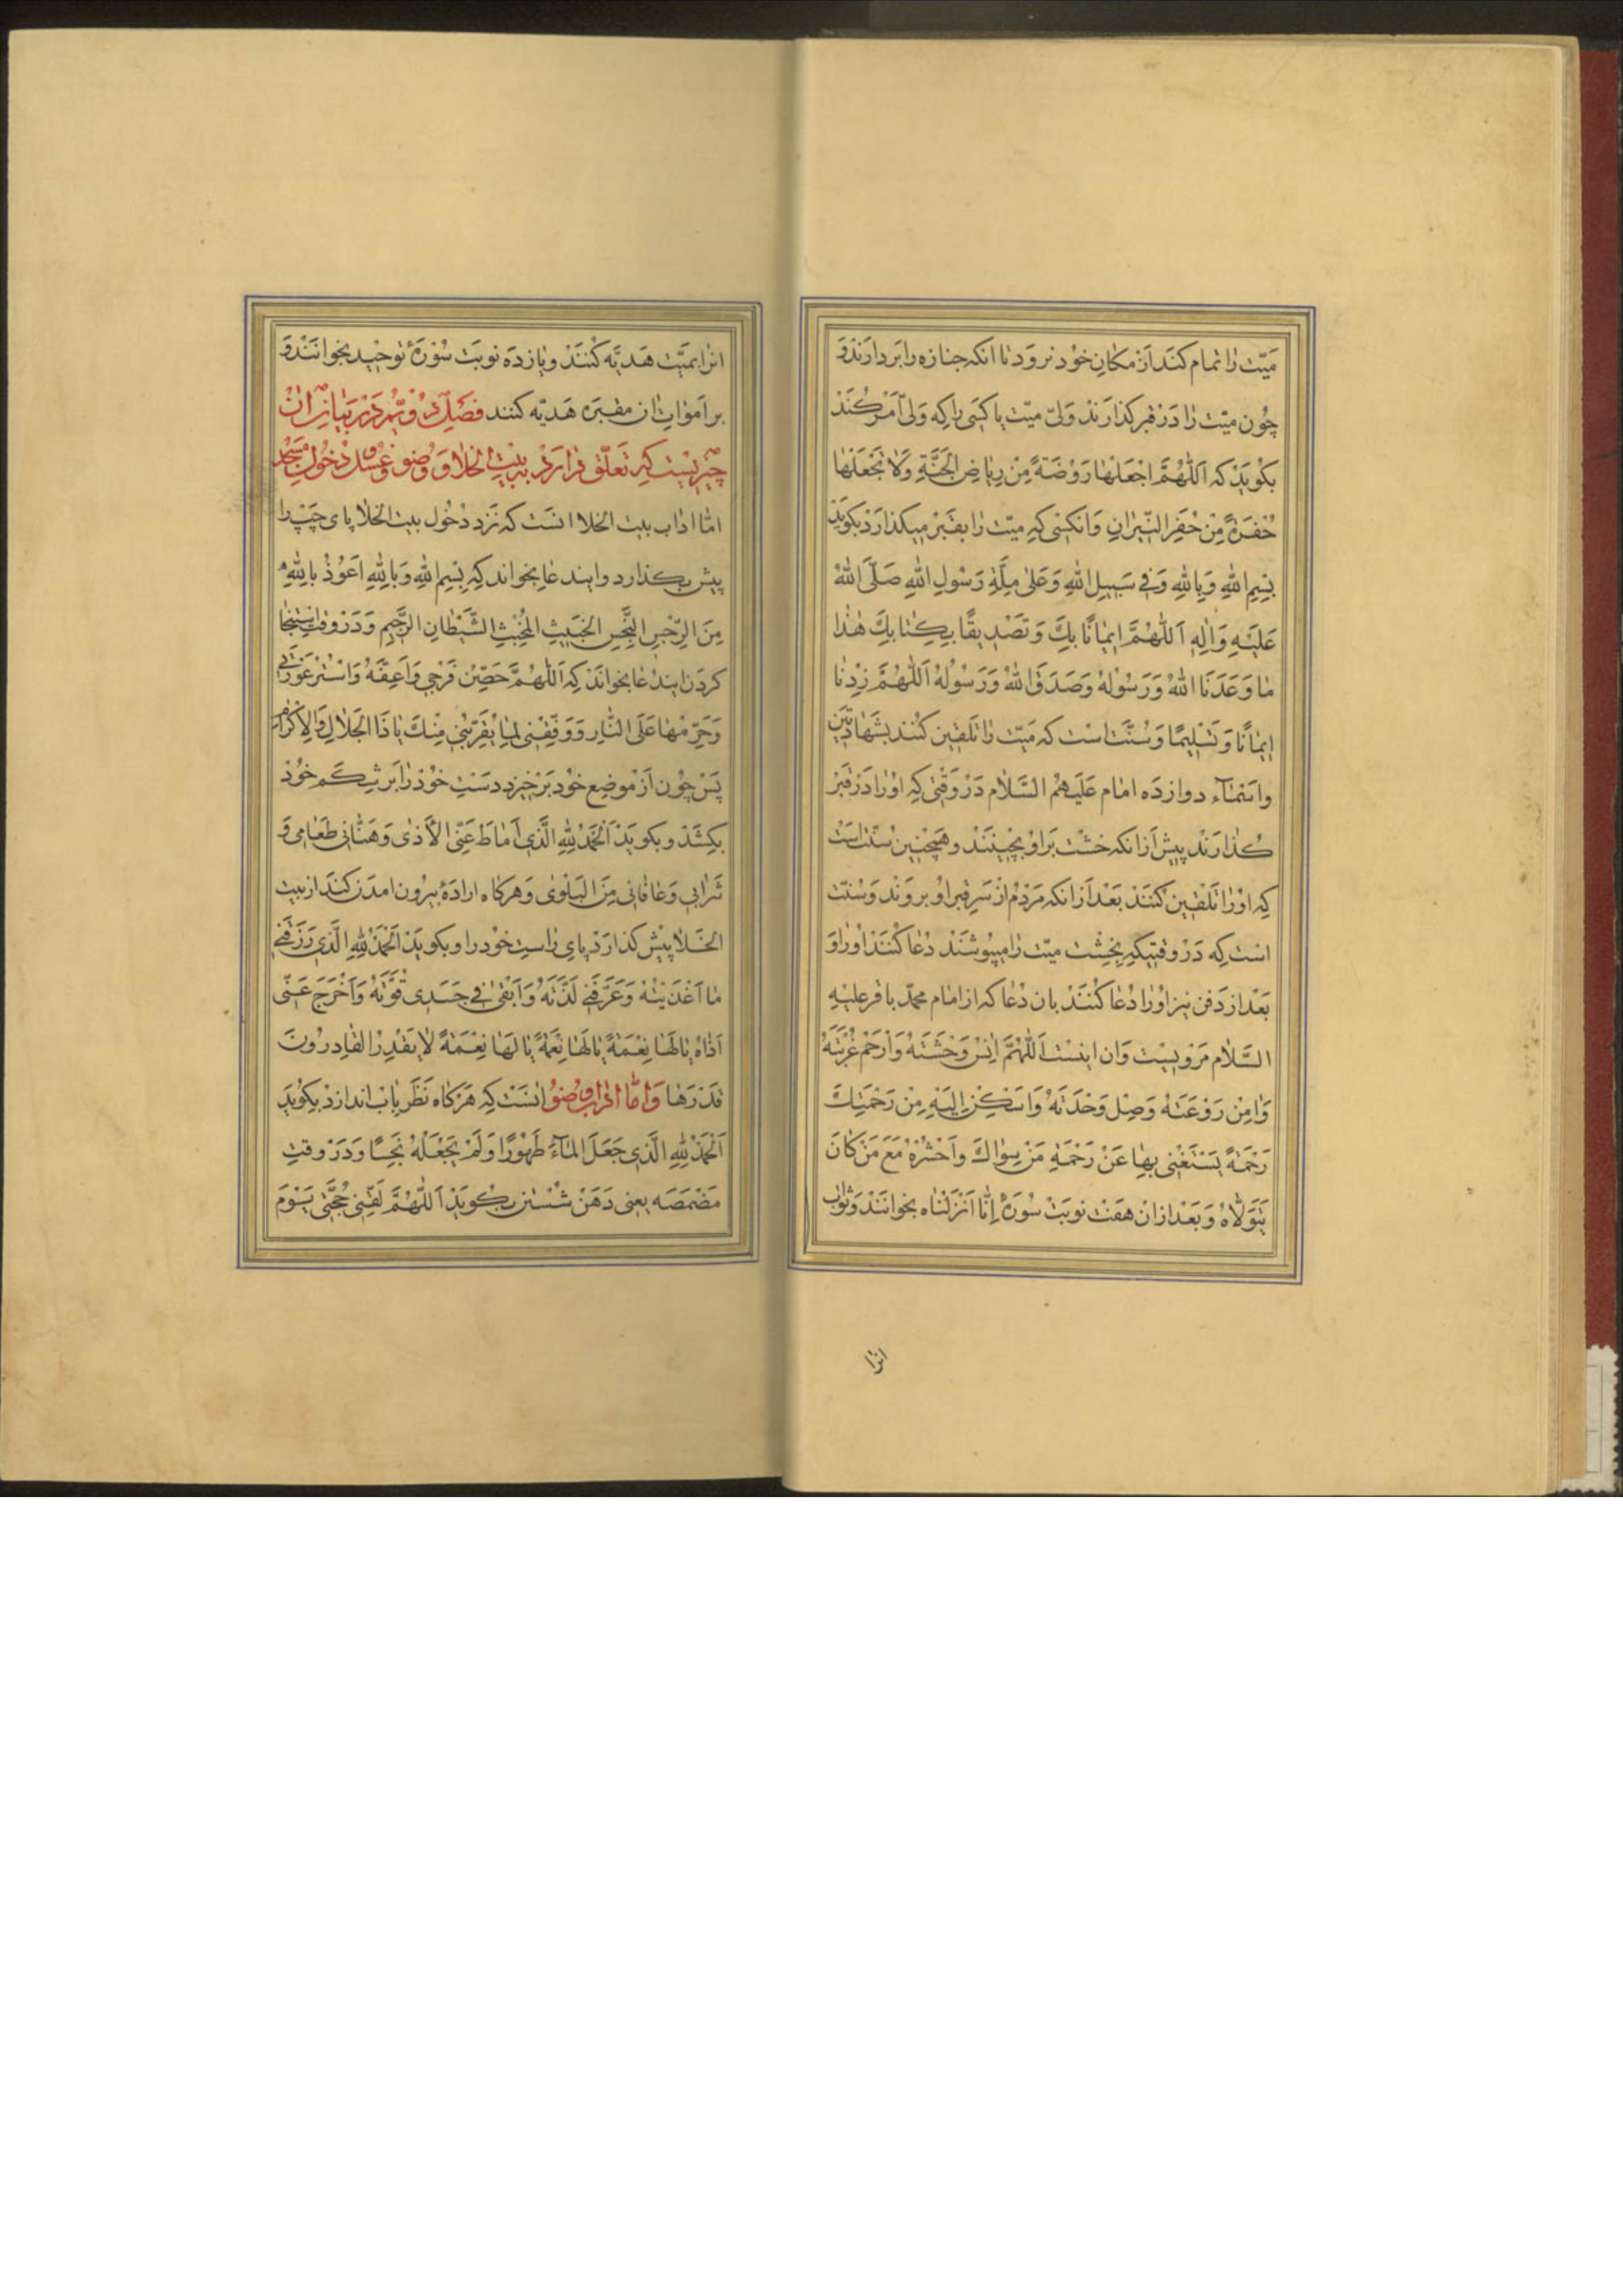 مَیّت را تمام کنَد اَز مکانِ خوُد نرود تا انکه جنازه را بَردارَند وَ
چُون میّت را دَر قبر کذارَند وَلیّ میّت یا کسَی را که وَلیّ اَمَر کُنَد
بکُویَد که اَللّٰهُمَّ اجْعَلْهٰا رَوْضَةً مِنْ رِیٰاضِ الجَنَّةِ وَلٰا تَجْعَلْهٰا
حُفْرَةً مِنْ حُفَرِ النّیٖرانِ وَانکسٖی که میّت را بقَبَر میکذارَد بکویَد
بِسِمِ اللهِ وَبِاللهِ وَفٖی سَبیلِ اللهِ وَعَلیٰ مِلَّةِ رَسُولِ اللهِ صَلَّی اللهُ
عَلَیْهِ وَاٰلِهِ اَللّٰهُمَّ اٖیمٰانًا بِكَ وَتَصْدٖیقًا بِکِتٰابِكَ هٰذٰا
مٰا وَعَدَنَا اللهُ وَرَسُولُهُ وَصَدَقَ اللهُ وَرَسُولُهُ اَللّٰهُمَّ زِدْنٰا
اٖیمٰانًا وَتَسْلٖیمًا وَسُنَّت است که مَیّت را تلقین کنُند بشَهٰادتَین
وَاسَمٰاء دوازدَه امٰام عَلَیهُم السَّلٰام دَر وَقتی که اوُرا دَر قَبر
کُذارَند پیش اَز انکه خشت بَراوُ بچینَند و همچُنین سُنّت است
که اوُرا تلقین کنُنَد بَعْد اَز انکه مَردُم از سَرِ قبر اوُ بروَند وَسُنّت
است که دَر وقتیکه بخِشت میّت را میپوشَند دُعٰا کنُنَد اورا وَ
بَعْد از دَفن نیز اوُرا دُعٰا کنُنَد بان دُعٰا که از امٰام محمّد باقر علیهِ
السَّلٰام مَرویسْت وَان اینست اَللّٰهُمَّ اٰنِسْ وَحْشَتَهُ وَارْحَمْ غُرْبَتَهُ
وَاٰمِنْ رَوْعَتَهُ وَصِلْ وَحْدَتَهُ وَاَسْکِنْ اِلَیْهِ مِنْ رَحْمَتِكَ
رَحْمَةً یَسْتَغْنٖی بِهٰا عَنْ رَحْمَةِ مَنْ سِوٰاكَ وَاحْشُرْهُ مَعَ مَنْ کٰانَ
یَتَوَلّٰاهُ وَبَعْد ازان هفَت نوبَت سُورَۀ اِنّٰا اَنْزَلْنٰاه بخوانَند وَثوٰاب
انرا
انرا بمیّت هَدیّه کنُنَد و یازدَه نوبَت سُورَۀ توحید بخوانَند وَ
بر اَمواتِ ان مقبَره هَدیّه کنند فصَلِ دُویُّم دَر بیٰانِ انْ
چیزیست که تعَلّق دارَد به بیت الخلا وَ وُضو وَغسُل وَ دخُولِ مَسْجد
امّا اداب بیت الخلا انست که نَزد دخُول بیت الخلا پای چَپ را
پیش بکذارد و ایندعا بخواند که بِسِمِ اللهِ وَبِاللهِ اَعُوذُ بِاللهِ
مِنَ الرِّجْسِ النَّجِسِ الخَبٖیثِ المُخْبِثِ الشَّیْطٰانِ الرَّجٖیمِ وَدَر وَقت استنجا
کردَن ایندعا بخوانَد که اَللّٰهُمَّ حَصِّنْ فَرْجٖی وَاَعِفَّهُ وَاسْتُرْ عَوْرَتٖی
وَحَرِّمْهٰا عَلَی النّٰارِ وَوَفِّقْنٖی لِمٰا یُقَرِّبُنٖی مِنْكَ یٰا ذَا الجَلٰالِ وَالاِکْرٰامِ
پَس چُون اَز موضِع خوُد بَرخیزد دسَتِ خوُد را بَر شِکَم خوُد
بکِشَد و بکویَد اَلْحَمْدُ لِلّٰهِ الَّذٖی اَمٰاطَ عَنِّی الْاَذٰی وَهَنَّانٖی طَعٰامٖی وَ
شَرٰابٖی وَعٰافٰانٖی مِنَ البَلْویٰ وَهرکٰاه ارادَۀ بیرُون امدَن کنَد از بیت
الخَلٰا پیش کذارَد پایِ راستِ خوُدرا و بکویَد اَلْحَمْدُ لِلّٰهِ الَّذٖی رَزَقَنٖی
مٰا اَغْذَیْتُهُ وَعَرَّفَنٖی لَذَّتَهُ وَاَبْقیٰ فٖی جَسَدٖی قُوَّتَهُ وَاَخْرَجَ عَنّٖی
اَذٰاهُ یٰا لَهٰا نِعْمَةً یٰا لَهٰا نِعْمَةً یٰا لَهٰا نِعْمَةً لٰا یَقْدِرُ القٰادِرُونَ
قَدْرَهٰا وَامّا اداب وُضوُ انست که هَرکاه نَظَر باب اندازد بکویَد
اَلْحَمْدُ لِلّٰهِ الَّذٖی جَعَلَ المٰاءَ طَهُورًا وَلَمْ یَجْعَلْهُ نَجِسًا وَدَر وقتِ
مَضمَضَه یعنی دَهَن شُستن بکویَد اَللّٰهُمَّ لَقِّنٖی حُجَّتٖی یَوْمَ